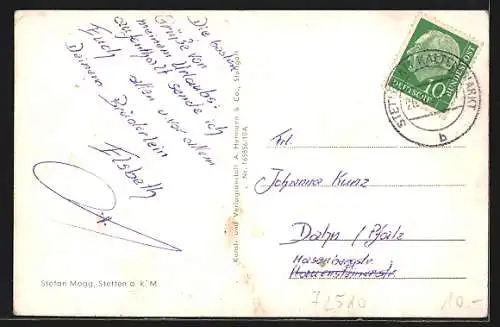 Die besten
Grüße von
meinem Urlaubs-
aufenthalt sende ich
Euch allen u. vor allem
Deinem Brüderlein
Elsbeth
Kunst- und Verlagsanstalt A. Hartmann & Co., Stuttgart
Nr. 165856/18A
10
DEUTSCHE BUNDESPOST
STETTEN KALTEN MARKT
b
Frl.
Johanna Kunz
Dahn / Pfalz
Hasenbergstr.
Stefan Mogg, Stetten a. k. M.
72510
10.-